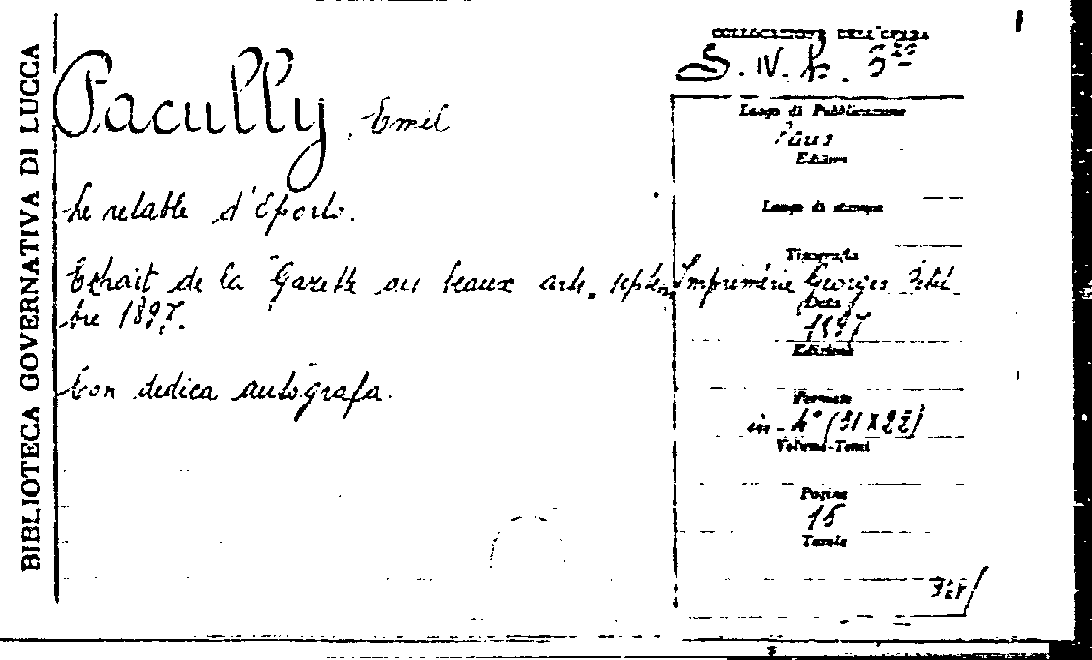 BIBLIOTECA GOVERNATIVA DI LUCCA
Pacully, Emil
Le retable d'Oporto.
Extrait de la Gazette des beaux arts, septem
bre 1897.
Con dedica autografa.
COLLOCAZIONE DELL'OPERA
S. IV. b.
Luogo di Pubblicazione
Paris
Editore
Luogo di stampa
Tipografia
Imprimérie Georges Petit
Data
1897
Edizione
Formato
in-4° (31X22)
Volume-Tomi
Pagine
15
Tavole